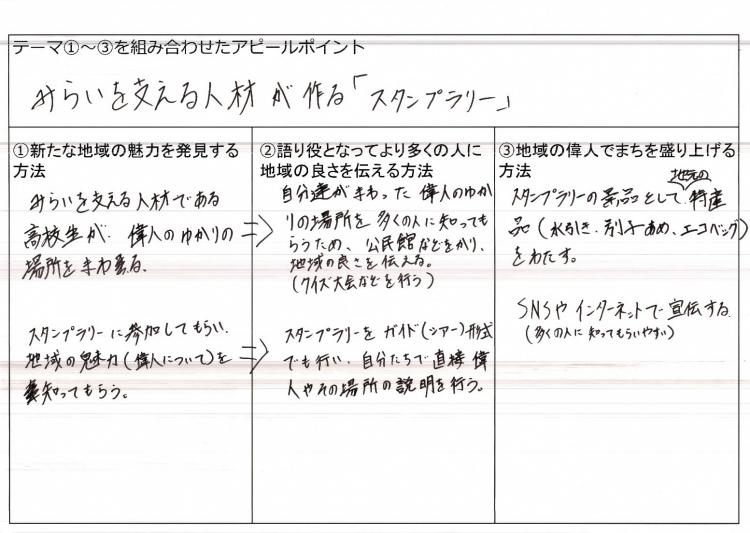 テーマ①～③を組み合わせたアピールポイント
みらいを支える人材が作る「スタンプラリー」
①新たな地域の魅力を発見する
方法
みらいを支える人材である
高校生が、偉人のゆかりの
場所をまわる。
スタンプラリーに参加してもらい、
地域の魅力(偉人について)を
知ってもらう。
②語り役となってより多くの人に
地域の良さを伝える方法
⇒ 自分達がまわった偉人のゆか
りの場所を多くの人に知っても
らうため、公民館などをかり、
地域の良さを伝える。
(クイズ大会などを行う)
⇒ スタンプラリーをガイド(ツアー)形式
でも行い、自分たちで直接偉
人やその場所の説明を行う。
③地域の偉人でまちを盛り上げる
方法
スタンプラリーの景品として、地元の特産
品(水引き、別子あめ、エコバッグ)
をわたす。
SNSやインターネットで宣伝する
(多くの人に知ってもらいやすい)